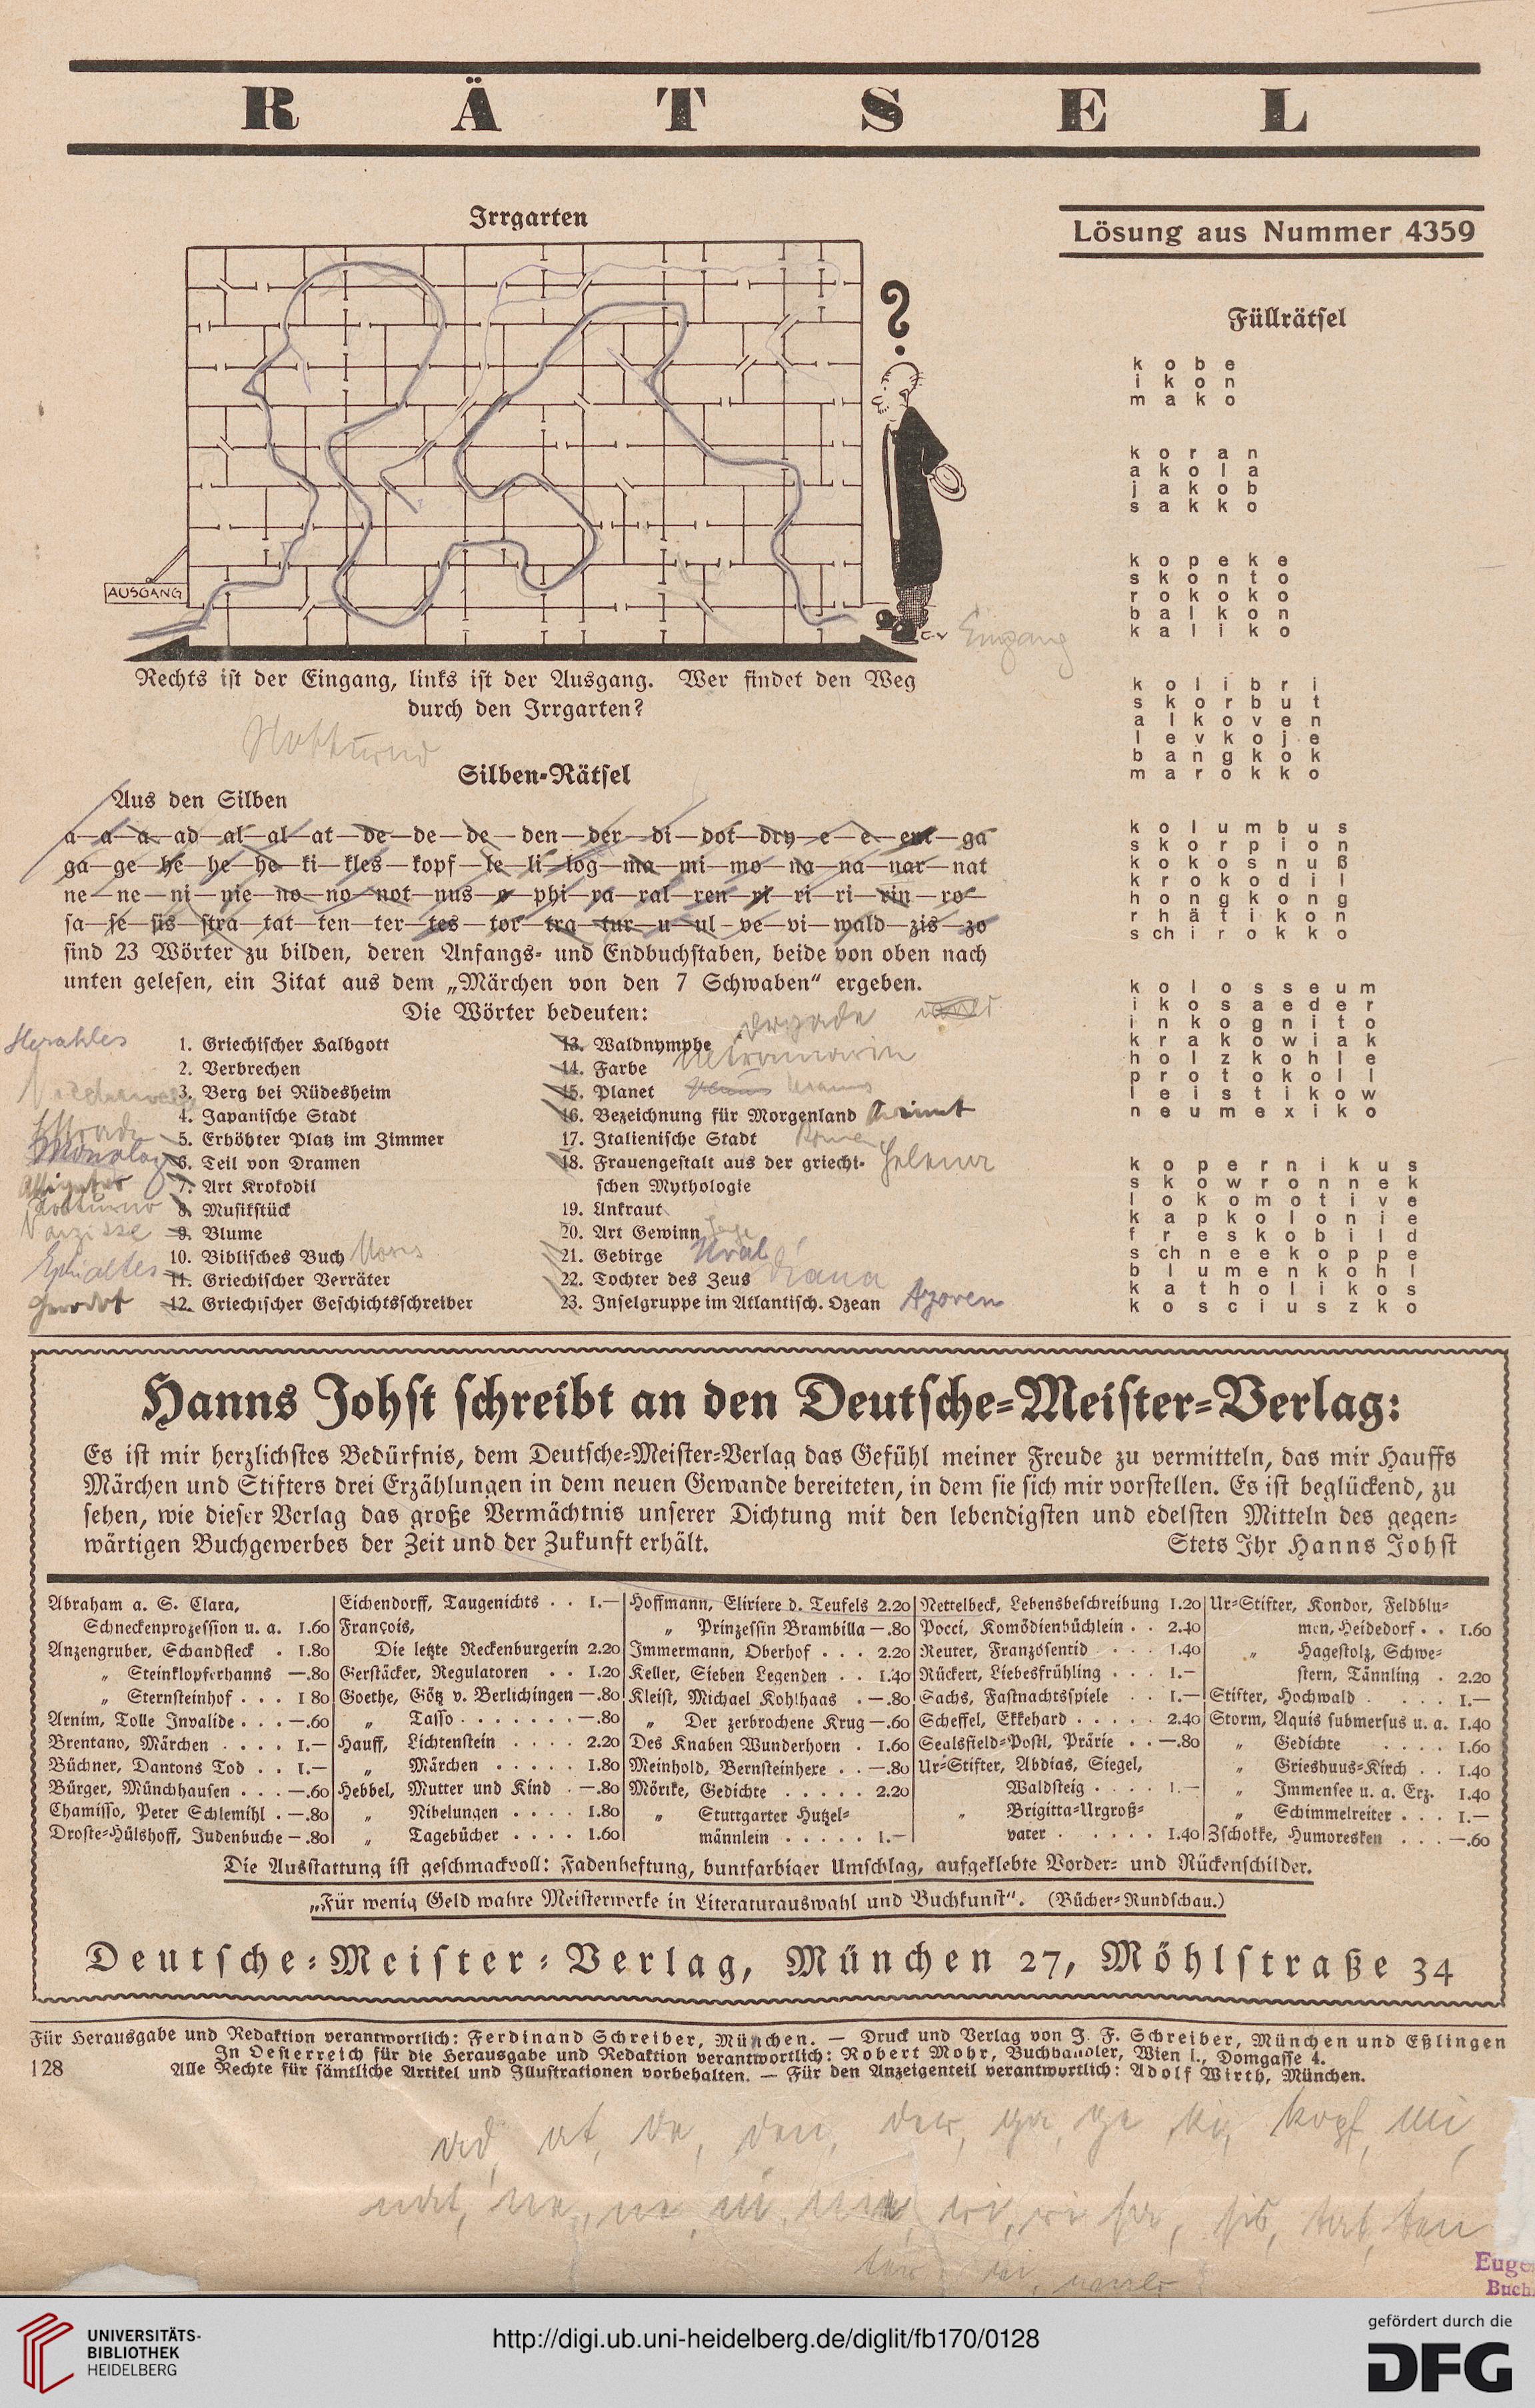 RÄTSEL
Irrgarten
AUSGANG
?
Eingang
Rechts ist der Eingang, links ist der Ausgang. Wer findet den Weg
durch den Irrgarten?
Notturno
Silben-Rätsel
Aus den Silben
a—a—a—ad—al—al—at—de—de—de—den—der—di—dot—dry—e—e—ent—ga
ga—ge—he—he—he—ki—kles—kopf—le—li—log—ma—mi—mo—na—na—nar—nat
ne—ne—ni—nie—no—no—not—nus—o—phi—ra—ral—ren—ri—ri—ri—rin—ro—
sa—se—sis—stra—tat—ten—ter—tes—tor—tra—tur—u—ul—ve—vi—wald—zis—zo
sind 23 Wörter zu bilden, deren Anfangs- und Endbuchstaben, beide von oben nach
unten gelesen, ein Zitat aus dem „Märchen von den 7 Schwaben“ ergeben.
Die Wörter bedeuten:
Herakles 1. Griechischer Halbgott
2. Verbrechen
3. Berg bei Rüdesheim
4. Japanische Stadt
Estrade 5. Erhöhter Platz im Zimmer
Monolog 6. Teil von Dramen
Alligator 7. Art Krokodil
Notturno 8. Musikstück
Narzisse 9. Blume
10. Biblisches Buch
Ephialtes 11. Griechischer Verräter
Herodot 12. Griechischer Geschichtsschreiber
13. Waldnymphe Dryade
14. Farbe Ultramarin
15. Planet Uranus
16. Bezeichnung für Morgenland Orient
17. Italienische Stadt
18. Frauengestalt aus der griechi-
schen Mythologie
19. Unkraut
20. Art Gewinn
21. Gebirge Ural
22. Tochter des Zeus Diana
23. Inselgruppe im Atlantisch. Ozean Azoren
Lösung aus Nummer 4359
Füllrätsel
k o b e
i k o n
m a k o
k o r a n
a k o l a
j a k o b
s a k k o
k o p e k e
s k o n t o
r o k o k o
b a l k o n
k a l i k o
k o l i b r i
s k o r b u t
a l k o v e n
l e v k o j e
b a n g k o k
m a r o k k o
k o l u m b u s
s k o r p i o n
k o k o s n u ß
k r o k o d i l
h o n g k o n g
r h ä t i k o n
s ch i r o k k o
k o l o s s e u m
i k o s a e d e r
i n k o g n i t o
k r a k o w i a k
h o l z k o h l e
p r o t o k o l l
l e i s t i k o w
n e u m e x i k o
k o p e r n i k u s
s k o w r o n n e k
l o k o m o t i v e
k a p k o l o n i e
f r e s k o b i l d
s ch n e e k o p p e
b l u m e n k o h l
k a t h o l i k o s
k o s c i u s z k o
Hanns Johst schreibt an den Deutsche-Meister-Verlag:
Es ist mir herzlichstes Bedürfnis, dem Deutsche-Meister-Verlag das Gefühl meiner Freude zu vermitteln, das mir Hauffs
Märchen und Stifters drei Erzählungen in dem neuen Gewande bereiteten, in dem sie sich mir vorstellen. Es ist beglückend, zu
sehen, wie dieser Verlag das große Vermächtnis unserer Dichtung mit den lebendigsten und edelsten Mitteln des gegen-
wärtigen Buchgewerbes der Zeit und der Zukunft erhält. Stets Ihr Hanns Johst
Abraham a. S. Clara,
Schneckenprozession u. a. 1.60
Anzengruber, Schandfleck . 1.80
„ Steinklopferhanns —.80
„ Sternsteinhof . . . 1 80
Arnim, Tolle Invalide . . . —.60
Brentano, Märchen . . . . 1.—
Büchner, Dantons Tod . . 1.—
Bürger, Münchhausen . . . —.60
Chamisso, Peter Schlemihl . —.80
Droste-Hülshoff, Judenbuche —.80
Eichendorff, Taugenichts . . 1.—
François,
Die letzte Reckenburgerin 2.20
Gerstäcker, Regulatoren . . 1.20
Goethe, Götz v. Berlichingen —.80
„ Tasso . . . . . . . —.80
Hauff, Lichtenstein . . . . 2.20
„ Märchen . . . . . 1.80
Hebbel, Mutter und Kind . —.80
„ Nibelungen . . . . 1.80
„ Tagebücher . . . . 1.60
Hoffmann, Elixiere d. Teufels 2.20
„ Prinzessin Brambilla —.80
Immermann, Oberhof . . . 2.20
Keller, Sieben Legenden . . 1.40
Kleist, Michael Kohlhaas . —.80
„ Der zerbrochene Krug —.60
Des Knaben Wunderhorn . 1.60
Meinhold, Bernsteinhexe . . —.80
Mörike, Gedichte . . . . . 2.20
„ Stuttgarter Hutzel-
männlein . . . . . 1.—
Nettelbeck, Lebensbeschreibung 1.20
Pocci, Komödienbüchlein . . 2.40
Reuter, Franzosentid . . . 1.40
Rückert, Liebesfrühling . . . 1.—
Sachs, Fastnachtsspiele . . 1.—
Scheffel, Ekkehard . . . . . 2.40
Sealsfield-Postl, Prärie . . —.80
Ur-Stifter, Abdias, Siegel,
Waldsteig . . . . 1.—
„ Brigitta-Urgroß-
vater . . . . . 1.40
Ur-Stifter, Kondor, Feldblu-
men, Heidedorf . . 1.60
„ Hagestolz, Schwe-
stern, Tännling . 2.20
Stifter, Hochwald . . . . 1.—
Storm, Aquis submersus u. a. 1.40
„ Gedichte . . . . 1.60
„ Grieshuus-Kirch . . 1.40
„ Immensee u. a. Erz. 1.40
„ Schimmelreiter . . . 1.—
Zschokke, Humoresken . . . —.60
Die Ausstattung ist geschmackvoll: Fadenheftung, buntfarbiger Umschlag, aufgeklebte Vorder- und Rückenschilder.
„Für wenig Geld wahre Meisterwerke in Literaturauswahl und Buchkunst“. (Bücher-Rundschau.)
Deutsche-Meister-Verlag, München 27, Möhlstraße 34
Für Herausgabe und Redaktion verantwortlich: Ferdinand Schreiber, München. — Druck und Verlag von J. F. Schreiber, München und Eßlingen
In Oesterreich für die Herausgabe und Redaktion verantwortlich: Robert Mohr, Buchhändler, Wien I., Domgasse 4.
128 Alle Rechte für sämtliche Artikel und Illustrationen vorbehalten. — Für den Anzeigenteil verantwortlich: Adolf Wirth, München.
ad, at, de, den, der, ga, ge, ki, kopf, mi,
nat, ne, ne, ni, ri, ri, sa, sis, tat, ten
Euge
Buch
UNIVERSITÄTS-
BIBLIOTHEK
HEIDELBERG
http://digi.ub.uni-heidelberg.de/diglit/fb170/0128
gefördert durch die
DFG